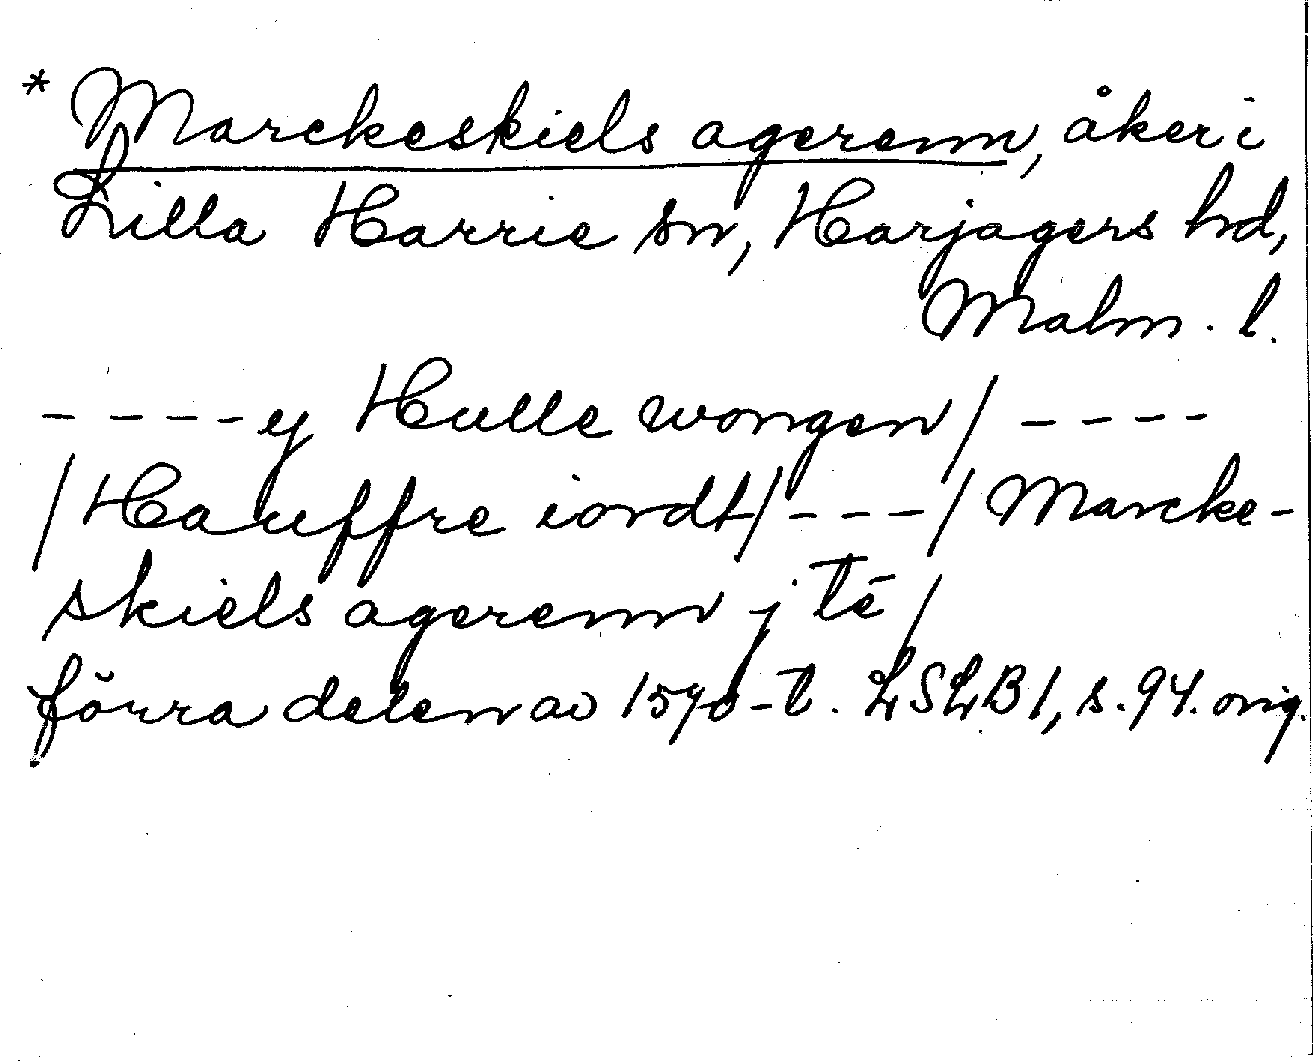 * Marckeskiels agerenn, åker i
Lilla Harrie sn, Harjagers hd,
Malm. l.
- - - - ej Hulle wongen / - - - -
/ Hauffre iordt / - - - / Marcke-
skiels agerenn j tē /
förra delen av 1570-t. LSLB 1, s. 94. orig.